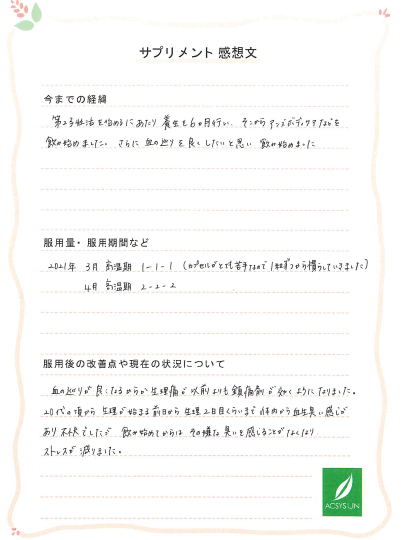 サプリメント 感想文
今までの経緯
第2子妊活を始めるにあたり 養生を6ヵ月行い、そこからアンチボディケアなどを
飲み始めました。さらに 血の巡りを良くしたいと思い 飲み始めました
服用量・服用期間など
2021年 3月 高温期 1-1-1 (カプセルがとても苦手なので1粒ずつから慣らしていきました)
4月 高温期 2-2-2
服用後の改善点や現在の状況について
血の巡りが良くなるからか 生理痛が以前よりも鎮痛剤が効くようになりました。
20代の頃から 生理が始まる前日から生理2日目くらいまで 体内から血生臭い感じが
あり 不快でしたが 飲み始めてからは その嫌な臭いを感じることがなくなり
ストレスが減りました。
ACSYS IJN